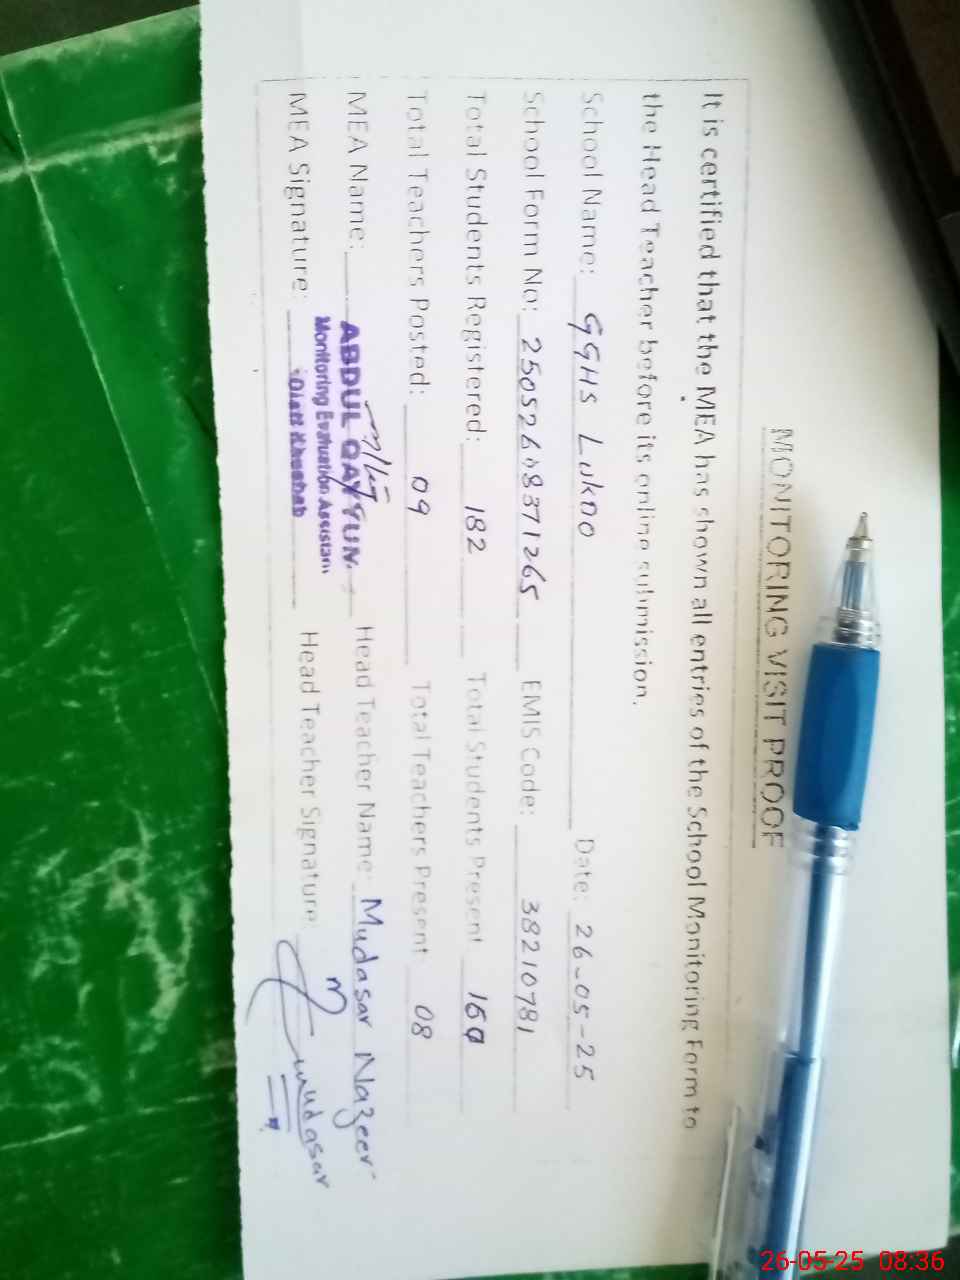 MONITORING VISIT PROOF
It is certified that the MEA has shown all entries of the School Monitoring Form to
the Head Teacher before its online submission.
School Name: GGHS Lukoo Date: 26-05-25
School Form No: 25052608371265 EMIS Code: 38210781
Total Students Registered: 182 Total Students Present 160
Total Teachers Posted: 09 Total Teachers Present 08
MEA Name: ABDUL QAYYUM Head Teacher Name: Mudasar Nazeer
Monitoring Evaluation Assistant
Distt Khushab
MEA Signature: Head Teacher Signature: Mudasar
26-05-25 08:36